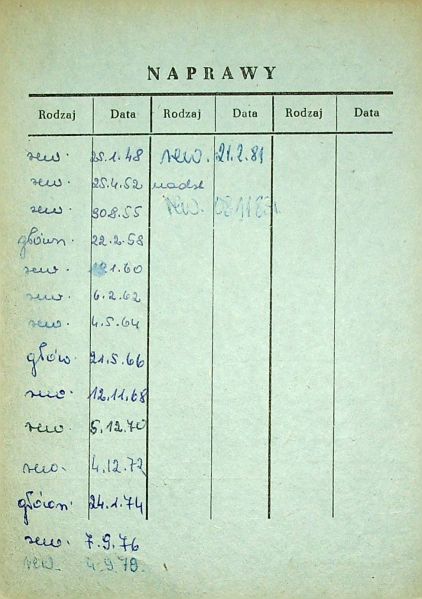 NAPRAWY
Rodzaj Data Rodzaj Data Rodzaj Data
rew. 25.1.48 rew. 21.2.81
rew. 25.4.52 nadz
rew. 30.8.55 rew.
główn. 22.2.58
rew. 1.60
rew. 6.2.62
rew. 4.5.64
głów. 21.5.66
rew. 12.11.68
rew. 5.12.70
rew. 4.12.72
główn. 24.1.74
rew. 7.9.76
rew. 4.9.79.